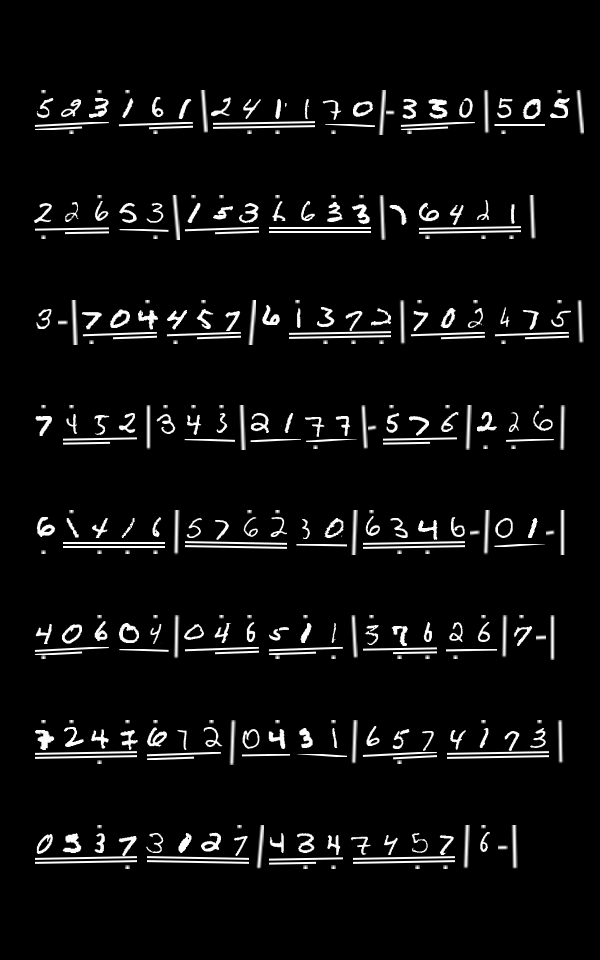 5 2 3 1 6 1 | 2 4 1 1 7 0 | - 3 3 0 | 5 0 5 |
2 2 6 5 3 | 1 5 3 6 6 3 3 | 7 6 4 2 1 |
3 - | 7 0 4 4 5 7 | 6 1 3 7 2 | 7 0 2 4 7 5 |
7 4 5 2 | 3 4 3 | 2 1 7 7 | - 5 7 6 | 2 2 6 |
6 1 4 1 6 | 5 7 6 2 3 0 | 6 3 4 6 - | 0 1 - |
4 0 6 0 4 | 0 4 6 5 1 1 | 3 7 6 2 6 | 7 - |
7 2 4 7 6 7 2 | 0 4 3 1 | 6 5 7 4 1 7 3 |
0 5 3 7 3 1 2 7 | 4 3 4 7 4 5 7 | 6 - |